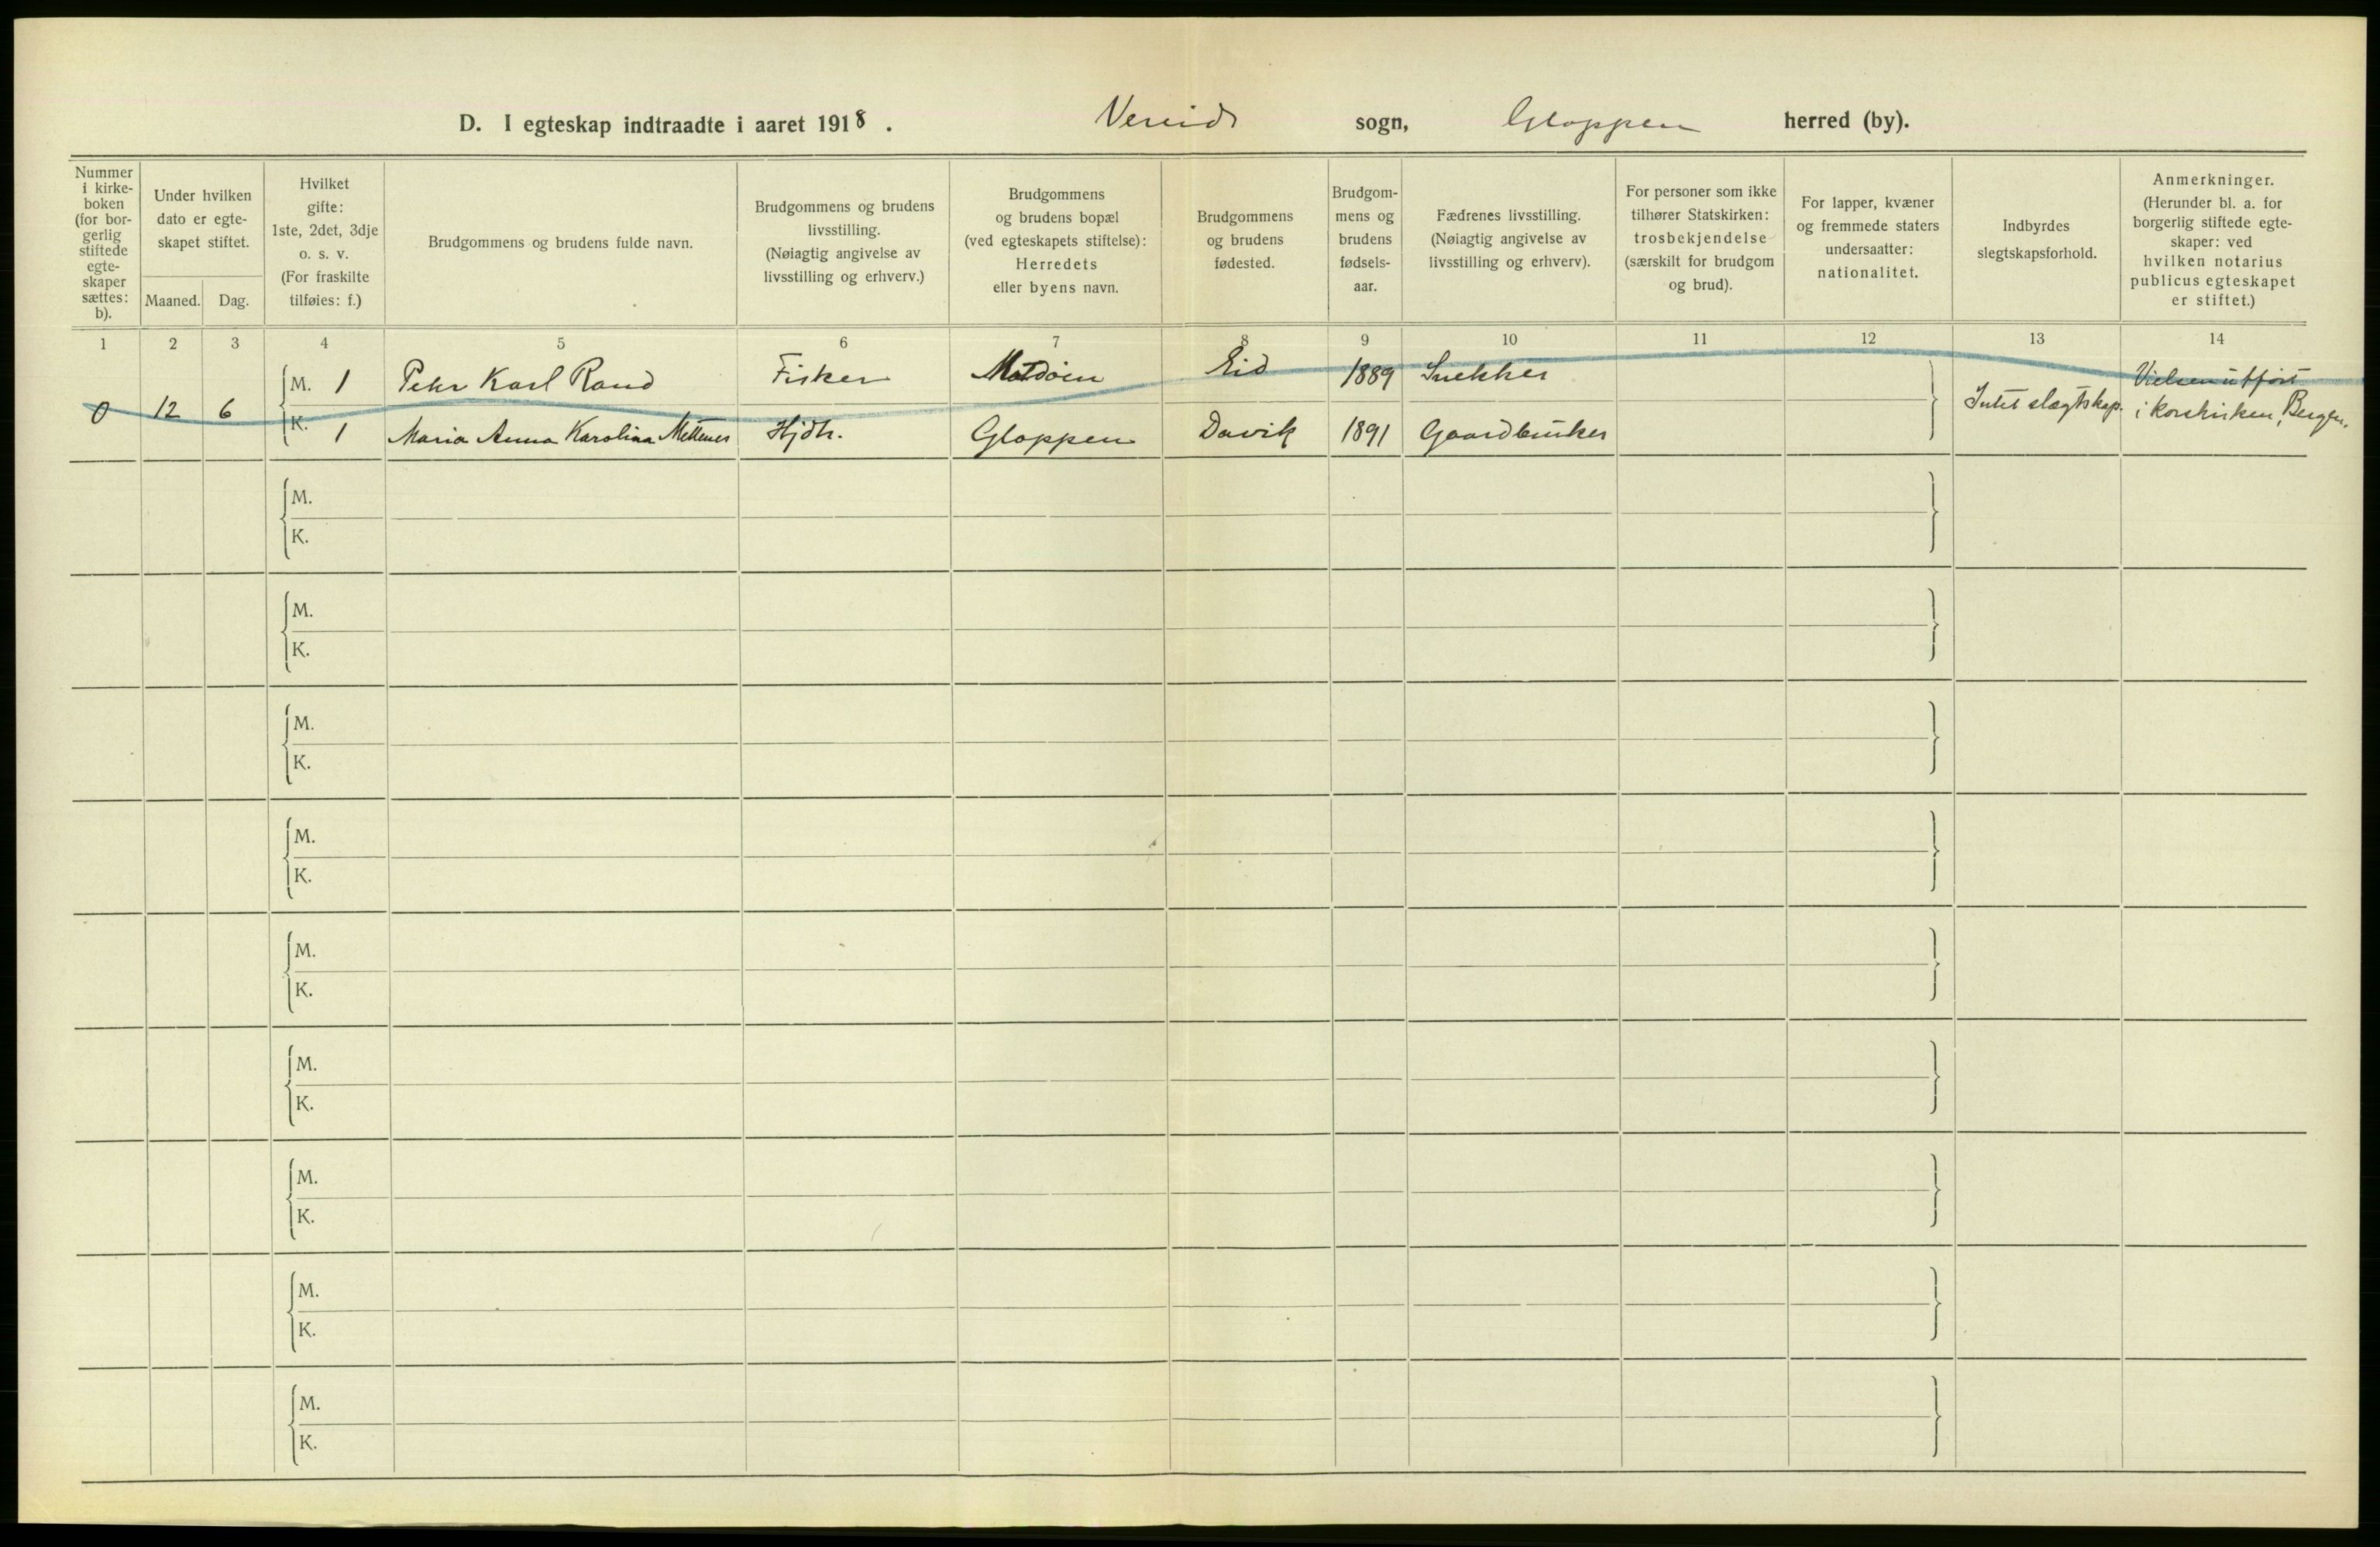 D. I egteskap indtraadte i aaret 1918. Vereid sogn, Gloppen herred (by).
Nummer i kirke-boken (for bor-gerlig stiftede egte-skaper sættes: b).
Under hvilken dato er egte-skapet stiftet.
Maaned. Dag.
Hvilket gifte: 1ste, 2det, 3dje o. s. v. (For fraskilte tilføies: f.)
Brudgommens og brudens fulde navn.
Brudgommens og brudens livsstilling. (Nøiagtig angivelse av livsstilling og erhverv.)
Brudgommens og brudens bopæl (ved egteskapets stiftelse): Herredets eller byens navn.
Brudgommens og brudens fødested.
Brudgom-mens og brudens fødsels-aar.
Fædrenes livsstilling. (Nøiagtig angivelse av livsstilling og erhverv).
For personer som ikke tilhører Statskirken: trosbekjendelse (særskilt for brudgom og brud).
For lapper, kvæner og fremmede staters undersaatter: nationalitet.
Indbyrdes slegtskapsforhold.
Anmerkninger. (Herunder bl. a. for borgerlig stiftede egte-skaper: ved hvilken notarius publicus egteskapet er stiftet.)
1 2 3 4 5 6 7 8 9 10 11 12 13 14
0 12 6
M. 1 Peter Karl Rand Fisker Eid 1889 Snekker
K. 1 Maria Anna Karolina Hjdtr. Gloppen Davik 1891 Gaardbruker
Intet slægtskap.
Vielsen utført
i Korskirken, Bergen.
M.
K.
M.
K.
M.
K.
M.
K.
M.
K.
M.
K.
M.
K.
M.
K.
M.
K.